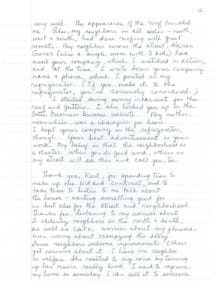 2
very well. The appearance of the roof bonded
me. Also, my neighbors on all sides - north,
west & south, had done roofing with great
results. My neighbor across the street, Karen
(also a single mom with 3 kids) had
used your company, which I watched in action,
and at the time I wrote down your company
name & phone, which I posted on my
refrigerator. (If you make it to the
refrigerator, you're seriously considered.)
I started saving money interest for the
roof and gutters. I also looked you up in the
Better Business Bureau website. My mother,
meanwhile, was a champion for
I kept your company on the refrigerator,
though. Your best advertisement is your
work. My belief is that the neighborhood is
a theater. When you do good work, others on
my street will see this and call you, too.
Thank you, Kurt, for spending time to
make up the bid & contract, and to
take time to listen to me talk about
the house - wanting something good for
us but also for the street and neighborhood.
Thanks for listening to my worries about
2 elderly neighbors on the north & south,
as well as cats, worries about my flowers,
even worry about occupying the alley.
Some neighbors welcome improvements. Others
get nervous about it. I have one neighbor
on
her music really loud. I want to improve
my home so someday I can sell it to someone